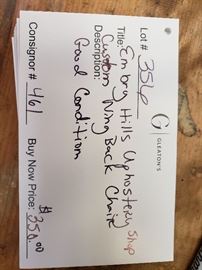 GLEATON'S
Lot # 356
Title: Embry Hills Upholstery Shop
Description:
Custom Wing Back Chair
Good Condition
Consignor # 461
Buy Now Price: $350.00